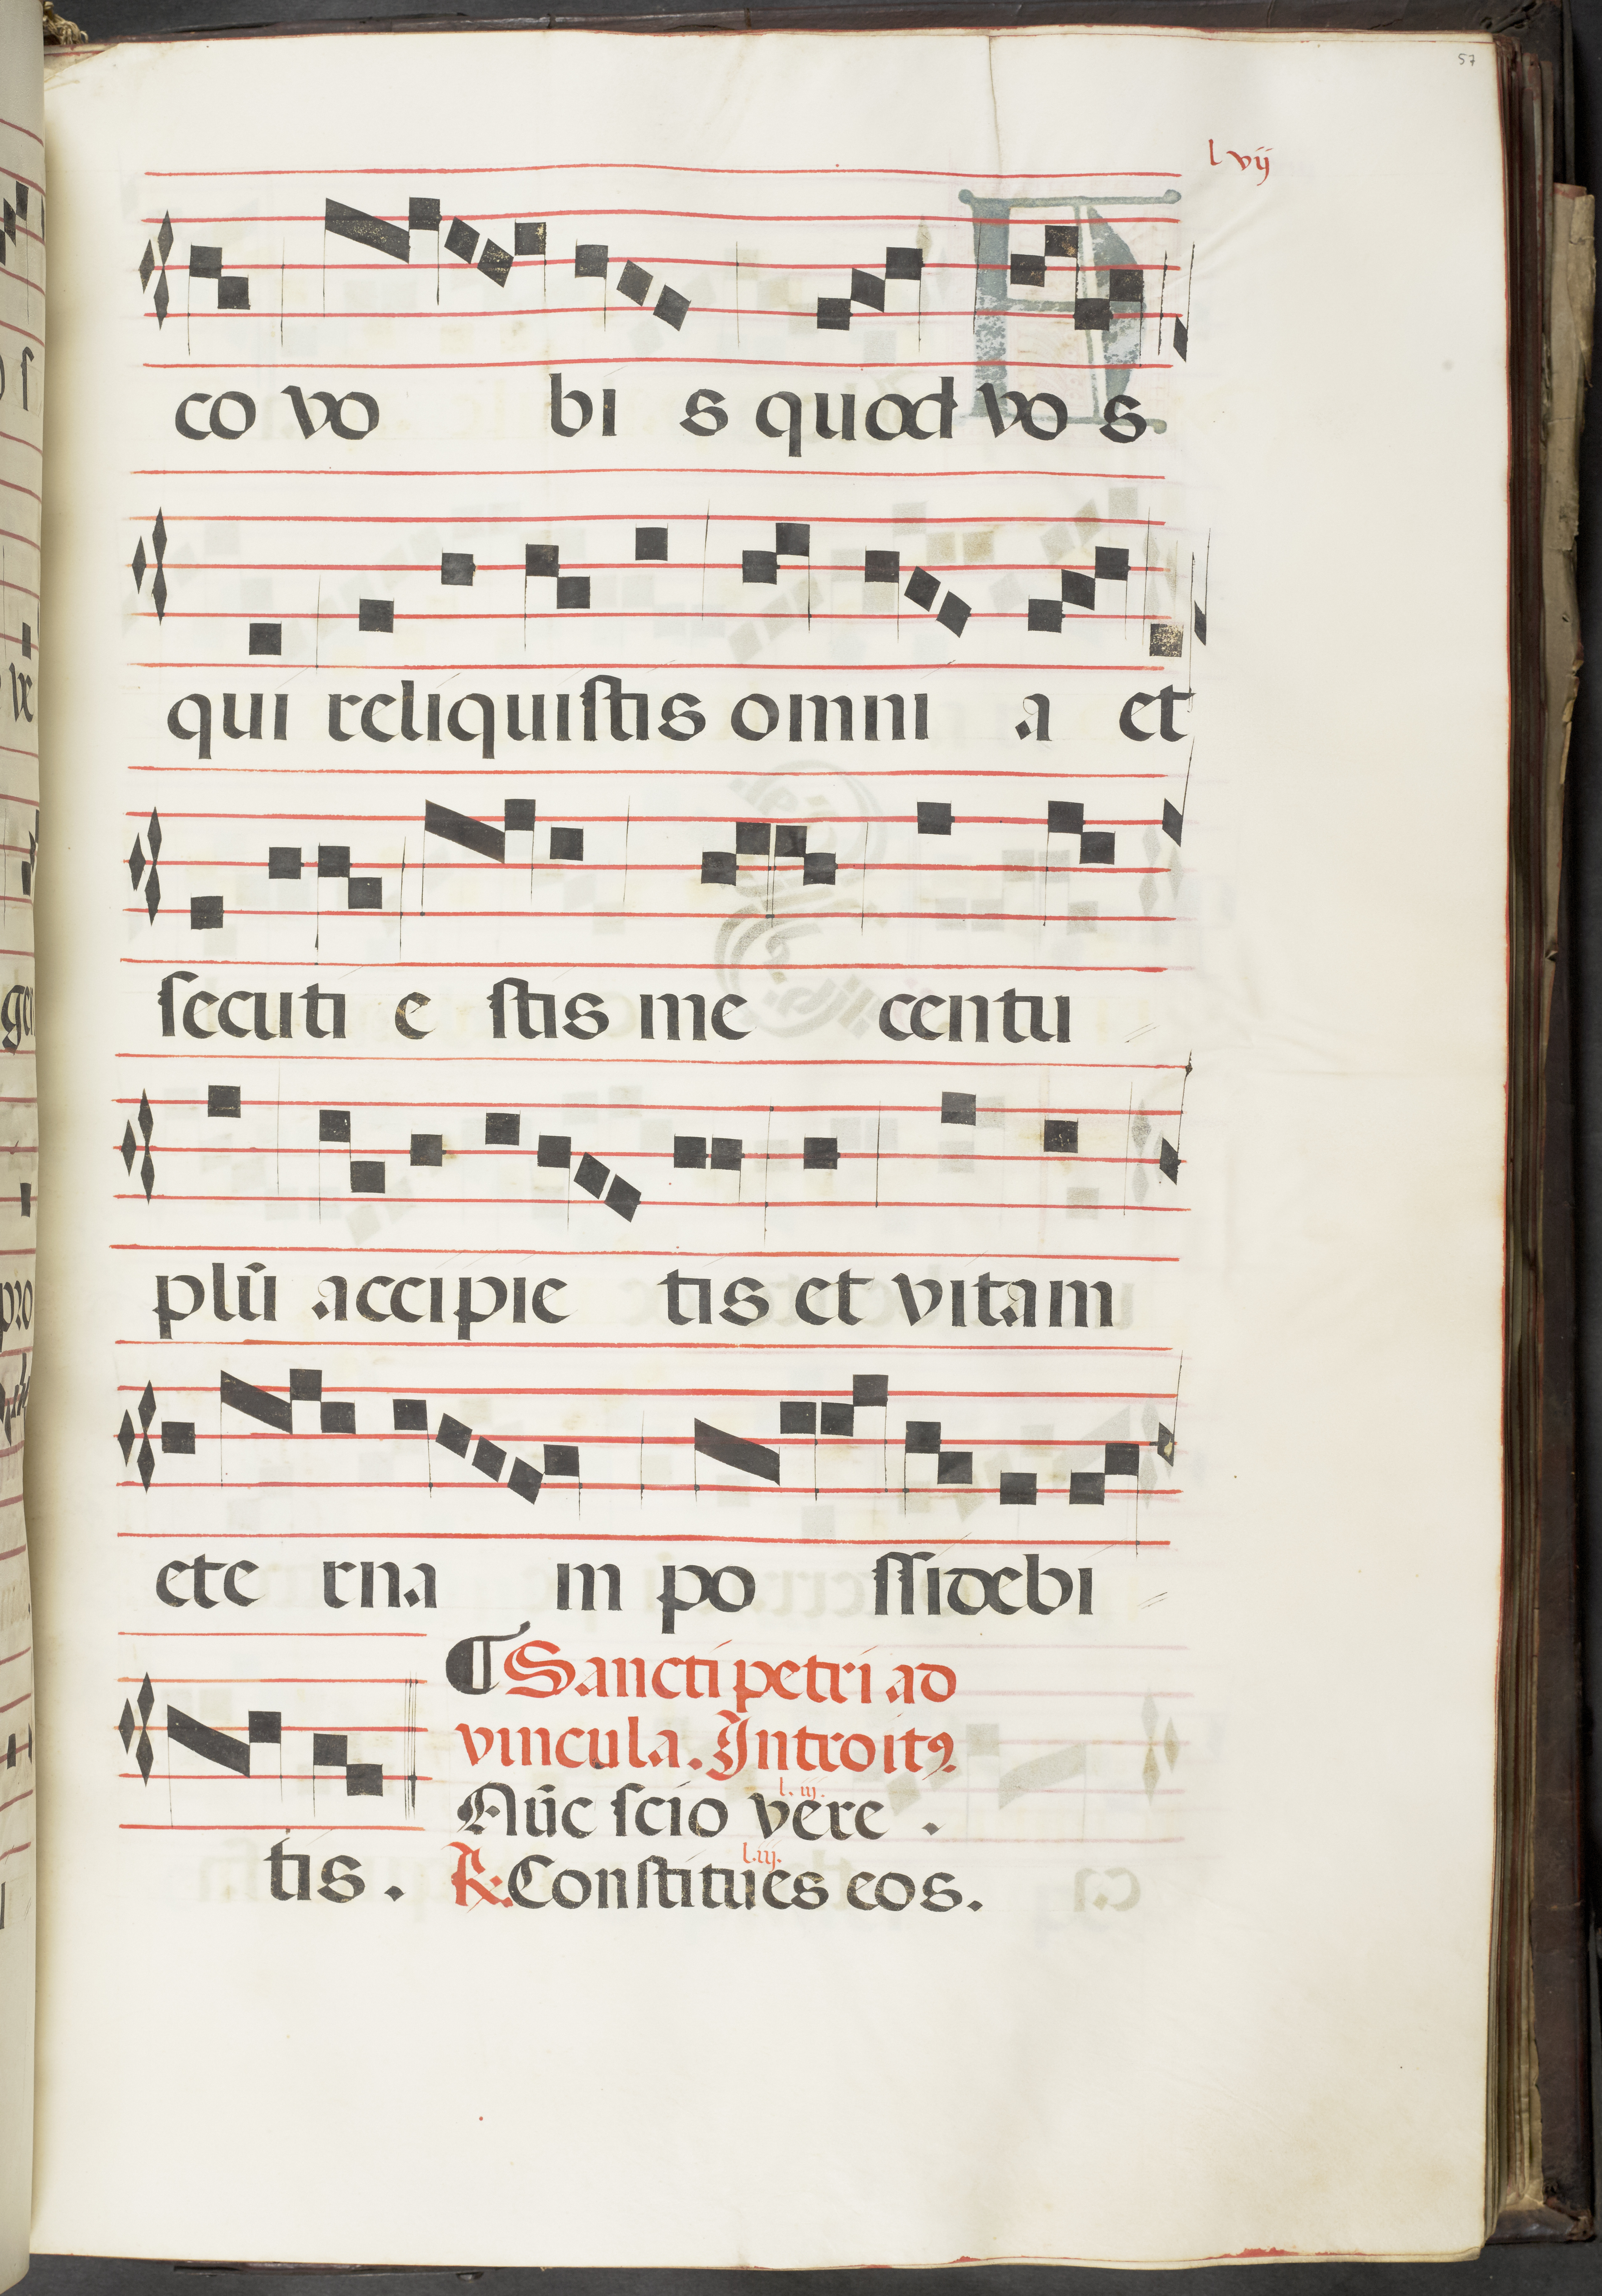 57
lvij
co vo bi s quod vo s
qui reliquistis omni a et
secuti e stis me centu
plū accipie tis et vitam
ete rna m po ssidebi
Sancti petri ad
vincula. Introitꝰ
l. iij.
Nūc scio vere .
l.iij.
tis . ℟. Constitues eos.